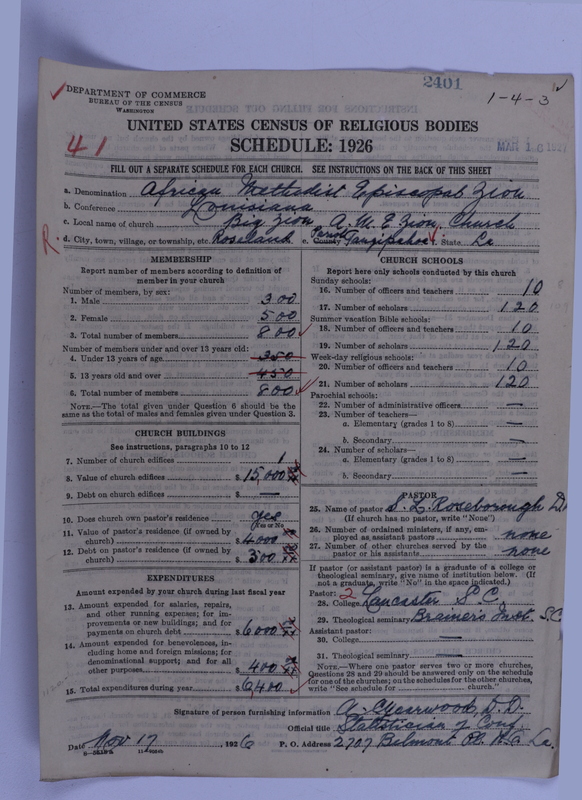 2401
1-4-3
DEPARTMENT OF COMMERCE
BUREAU OF THE CENSUS
WASHINGTON
UNITED STATES CENSUS OF RELIGIOUS BODIES
SCHEDULE: 1926
MAR 18 1927
41
FILL OUT A SEPARATE SCHEDULE FOR EACH CHURCH. SEE INSTRUCTIONS ON THE BACK OF THIS SHEET
a. Denomination African Methodist Episcopal Zion
b. Conference Louisiana
c. Local name of church Big Zion A. M. E. Zion Church
R. d. City, town, village, or township, etc. Roseland e. County Parish Tangipahoa f. State La
MEMBERSHIP
Report number of members according to definition of
member in your church
Number of members, by sex:
1. Male 300
2. Female 500
3. Total number of members 800
Number of members under and over 13 years old:
4. Under 13 years of age 350
5. 13 years old and over 450
6. Total number of members 800
NOTE.—The total given under Question 6 should be the
same as the total of males and females given under Question 3.
CHURCH BUILDINGS
See instructions, paragraphs 10 to 12
7. Number of church edifices 1
8. Value of church edifices $ 15,000
9. Debt on church edifices $ —
10. Does church own pastor's residence yes
(Yes or No)
11. Value of pastor's residence (if owned by
church) $ 4000
12. Debt on pastor's residence (if owned by
church) $ 300
EXPENDITURES
Amount expended by your church during last fiscal year
13. Amount expended for salaries, repairs,
and other running expenses; for im-
provements or new buildings; and for
payments on church debt $ 6000
14. Amount expended for benevolences, in-
cluding home and foreign missions; for
denominational support; and for all
other purposes $ 400
15. Total expenditures during year $ 6400
CHURCH SCHOOLS
Report here only schools conducted by this church
Sunday schools:
16. Number of officers and teachers 10
17. Number of scholars 120
Summer vacation Bible schools:
18. Number of officers and teachers 10
19. Number of scholars 120
Week-day religious schools:
20. Number of officers and teachers 10
21. Number of scholars 120
Parochial schools:
22. Number of administrative officers —
23. Number of teachers—
a. Elementary (grades 1 to 8) —
b. Secondary —
24. Number of scholars—
a. Elementary (grades 1 to 8) —
b. Secondary —
PASTOR
25. Name of pastor S. L. Roseborough
(If church has no pastor, write "None")
26. Number of ordained ministers, if any, em-
ployed as assistant pastors none
27. Number of other churches served by the
pastor or his assistants none
If pastor (or assistant pastor) is a graduate of a college or
theological seminary, give name of institution below. (If
not a graduate, write "No" in the space indicated.)
Pastor: 2
28. College Lancaster S. C.
29. Theological seminary Inst. S.C.
Assistant pastor:
30. College —
31. Theological seminary —
NOTE.—Where one pastor serves two or more churches,
Questions 28 and 29 should be answered only on the schedule
for one of the churches; on the schedules for the other churches,
write "See schedule for church."
Signature of person furnishing information D.D.
Official title Statistician of Conf
Date Nov 17, 1926 P. O. Address 2707 Belmont Pl. La.